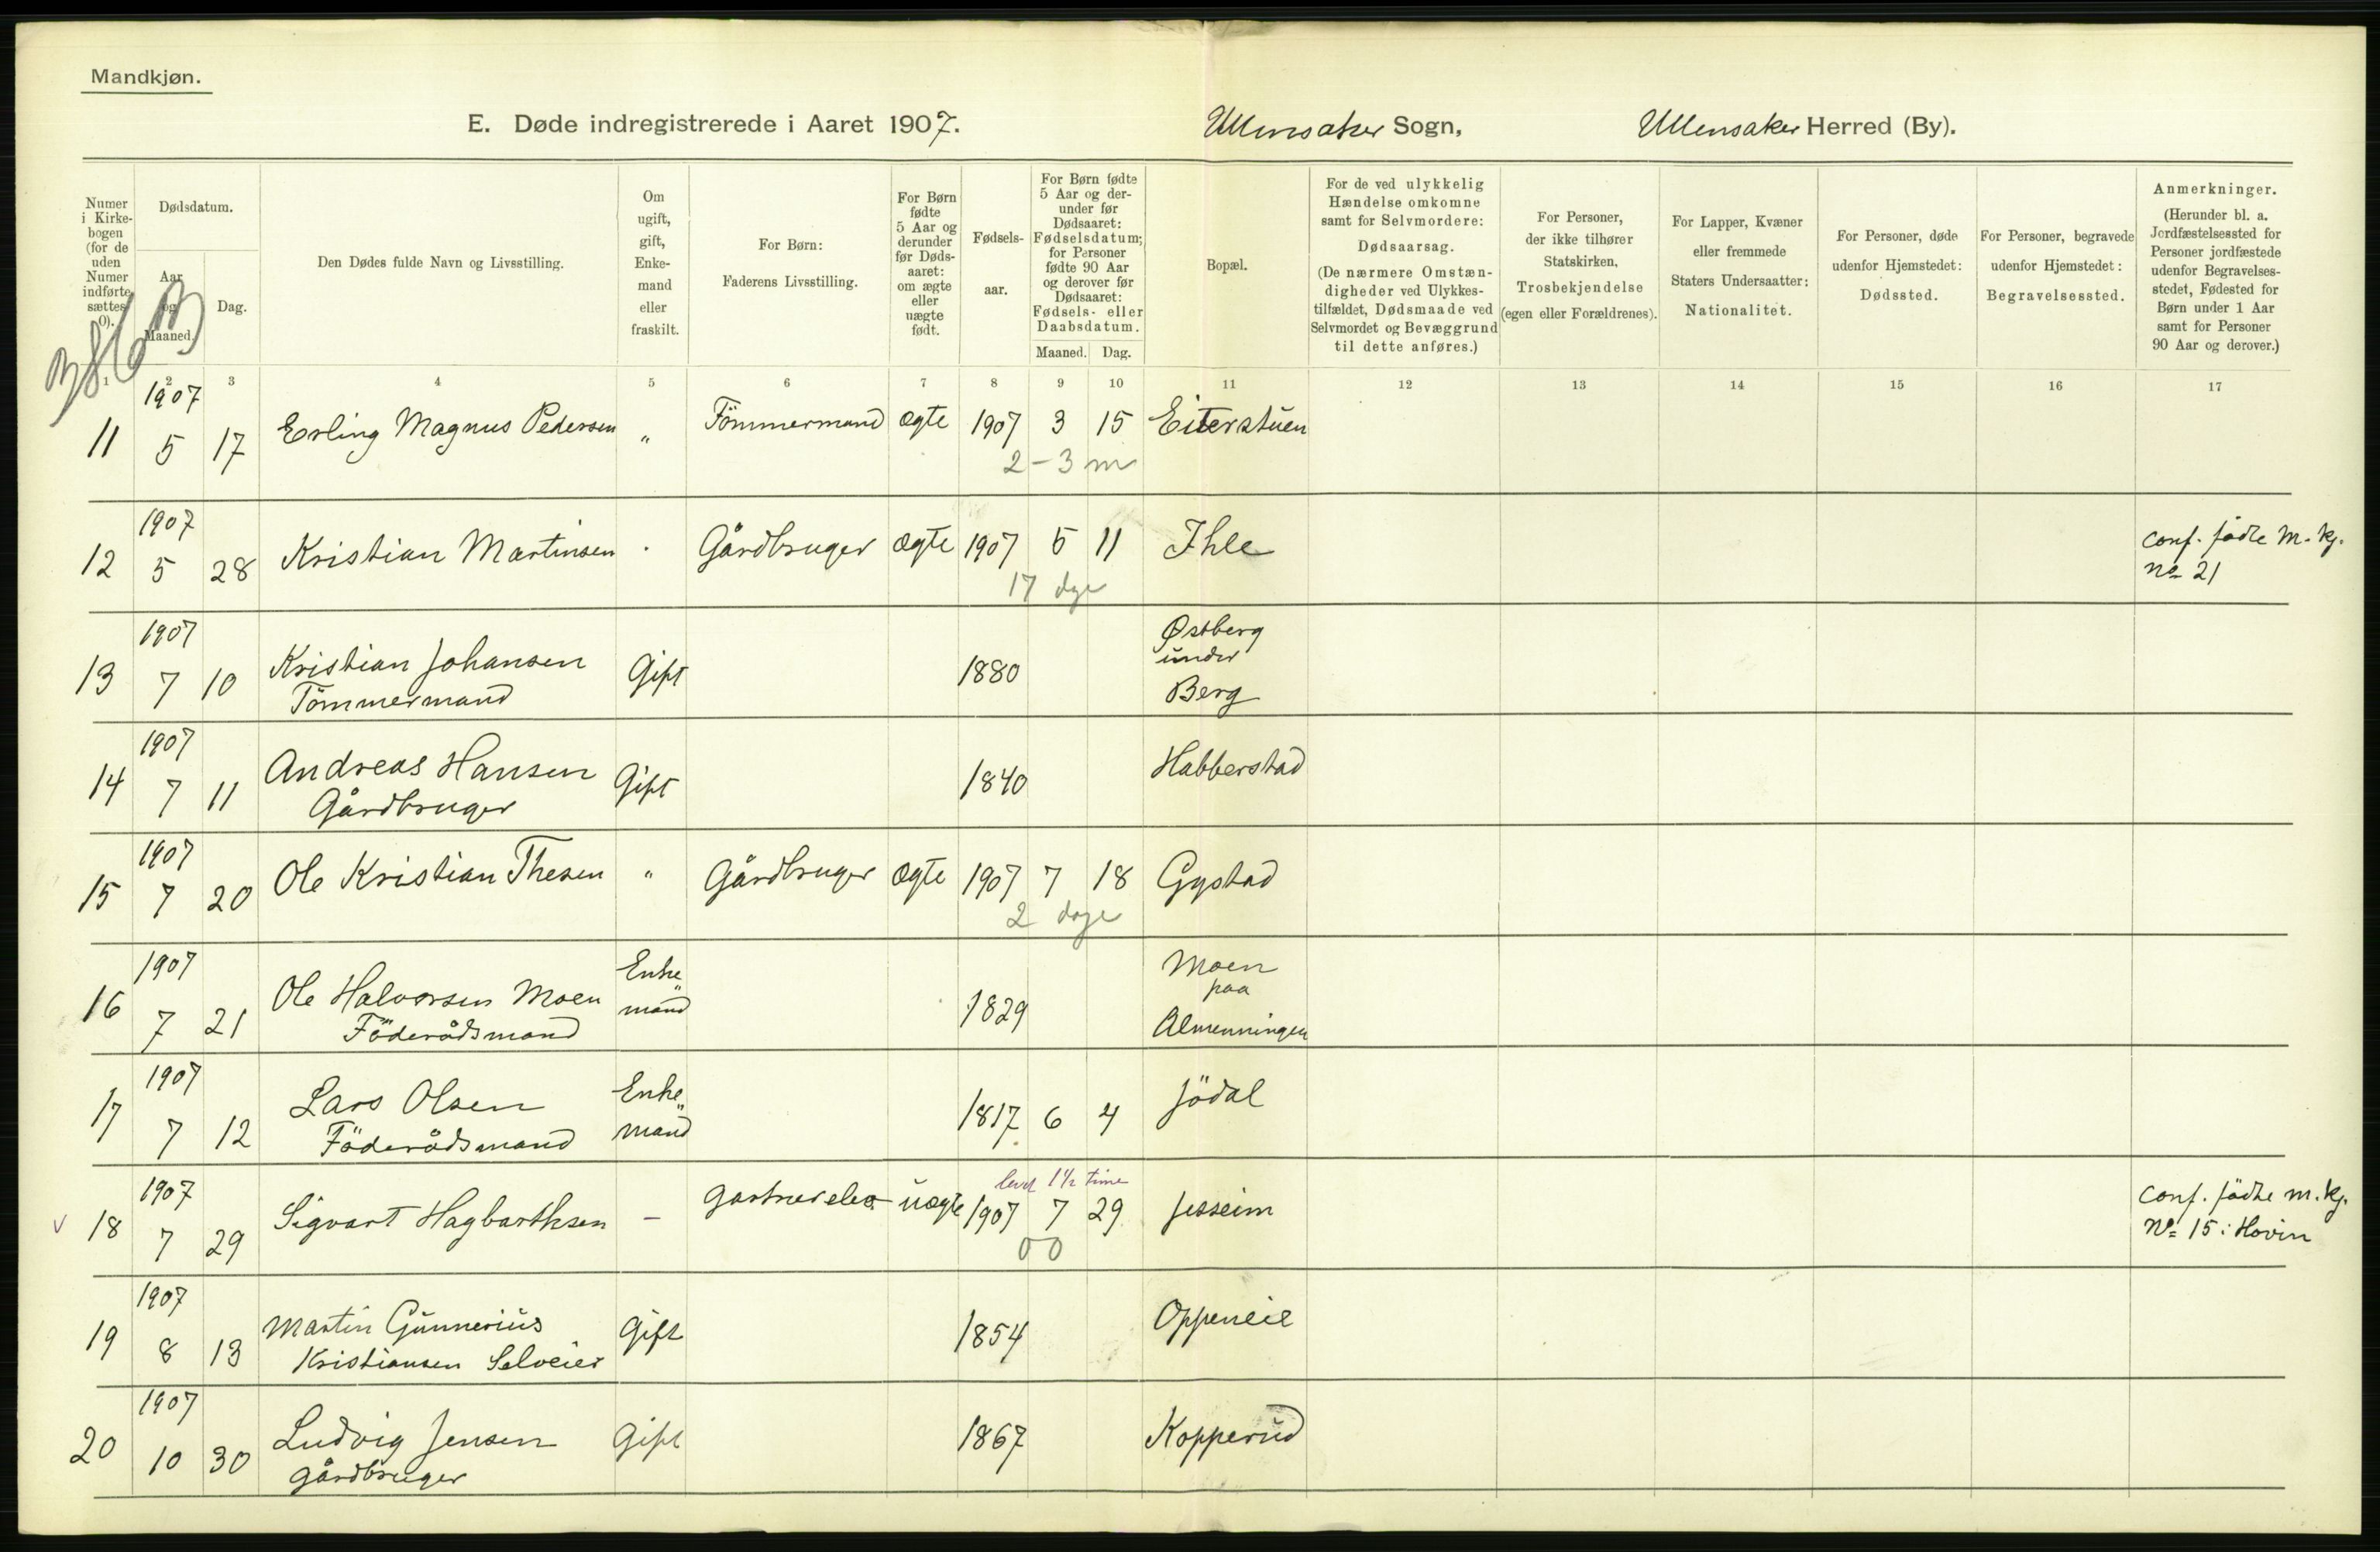 Mandkjøn.
E. Døde indregistrerede i Aaret 1907. Ullensaker Sogn, Ullensaker Herred (By).
Numer i Kirke- bogen (for de uden Numer indførte sættes 0).
Dødsdatum.
Aar og Maaned.
Dag.
Den Dødes fulde Navn og Livsstilling.
Om ugift, gift, Enke- mand eller fraskilt.
For Børn: Faderens Livsstilling.
For Børn fødte 5 Aar og derunder før Døds- aaret: om ægte eller uægte født.
Fødsels- aar.
For Børn fødte 5 Aar og der- under før Dødsaaret: Fødselsdatum; for Personer fødte 90 Aar og derover før Dødsaaret: Fødsels- eller Daabsdatum.
Maaned. Dag.
Bopæl.
For de ved ulykkelig Hændelse omkomne samt for Selvmordere: Dødsaarsag. (De nærmere Omstæn- digheder ved Ulykkes- tilfældet, Dødsmaade ved Selvmordet og Bevæggrund til dette anføres.)
For Personer, der ikke tilhører Statskirken, Trosbekjendelse (egen eller Forældrenes).
For Lapper, Kvæner eller fremmede Staters Undersaatter: Nationalitet.
For Personer, døde udenfor Hjemstedet: Dødssted.
For Personer, begravede udenfor Hjemstedet: Begravelsessted.
Anmerkninger. (Herunder bl. a. Jordfæstelsessted for Personer jordfæstede udenfor Begravelses- stedet, Fødested for Børn under 1 Aar samt for Personer 90 Aar og derover.)
1 2 3 4 5 6 7 8 9 10 11 12 13 14 15 16 17
1907
11 5 17 Erling Magnus Pedersen " Tömmermand ægte 1907 3 15 Eiterstuen
2-3 m
1907
12 5 28 Kristian Martinsen . Gårdbruger ægte 1907 5 11 Ihle conf. födte M. kj.
17 dge no 21
1907 Østberg
under
13 7 10 Kristian Johansen Gift 1880 Berg
Tömmermand
1907
14 7 11 Andreas Hansen Gift 1840 Habberstad
Gårdbruger
1907
15 7 20 Ole Kristian Thesen " Gårdbruger ægte 1907 7 18 Gystad
2 dage
1907 Enke" Moen
paa
16 7 21 Ole Halvorsen Moen mand 1829 Almenningen
Föderådsmand
1907 Enke"
17 7 12 Lars Olsen mand 1817 6 4 Jödal
Föderådsmand
levet 1½ time
1907
18 7 29 Sigvart Hagbarthsen - uægte 1907 7 29 Jesseim conf. födte m. kj.
00 No 15 i Hovin
1907
19 8 13 Martin Gunnerius Gift 1854
Kristiansen Selveier
1907
20 10 30 Ludvig Jensen Gift 1867 Kopperud
gårdbruger